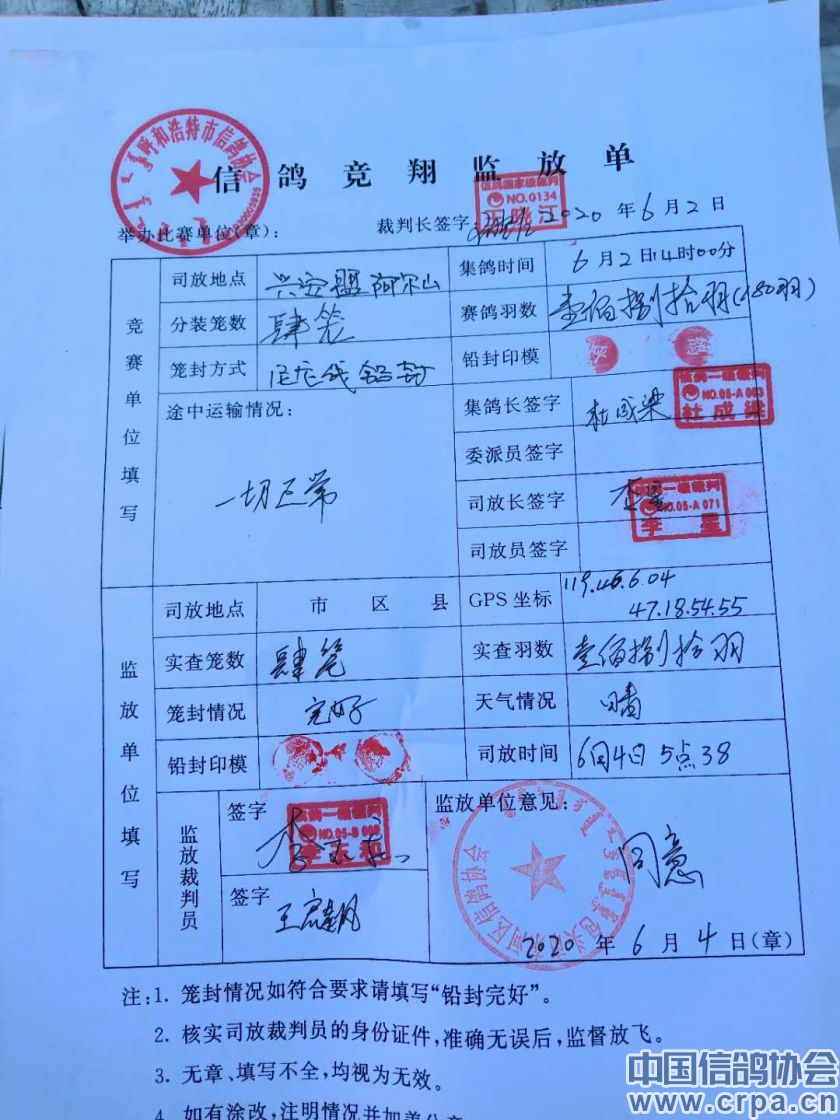 信鸽竞翔监放单
呼和浩特市信鸽协会
信鸽国家级裁判
NO.0134
王晓江
举办比赛单位(章): 裁判长签字: 2020年6月2日
竞赛单位填写
司放地点 兴安盟阿尔山 集鸽时间 6月2日14时00分
分装笼数 肆笼 赛鸽羽数 壹佰捌拾羽(180羽)
笼封方式 铅封 铅封印模
途中运输情况: 一切正常
集鸽长签字 杜成梁
NO.05-A 003
杜成梁
委派员签字
司放长签字 李星
NO.05-A 071
李星
司放员签字
监放单位填写
司放地点 市 区 县 GPS坐标 119.46.6.04
47.18.54.55
实查笼数 肆笼 实查羽数 壹佰捌拾羽
笼封情况 完好 天气情况 晴
铅封印模 司放时间 6月4日5点38
监放裁判员
签字
签字
监放单位意见: 同意
区信鸽协会
2020年6月4日(章)
注:1. 笼封情况如符合要求请填写“铅封完好”。
2. 核实司放裁判员的身份证件,准确无误后,监督放飞。
3. 无章、填写不全,均视为无效。
4. 如有涂改,注明情况并加盖公章
中国信鸽协会
www.crpa.cn